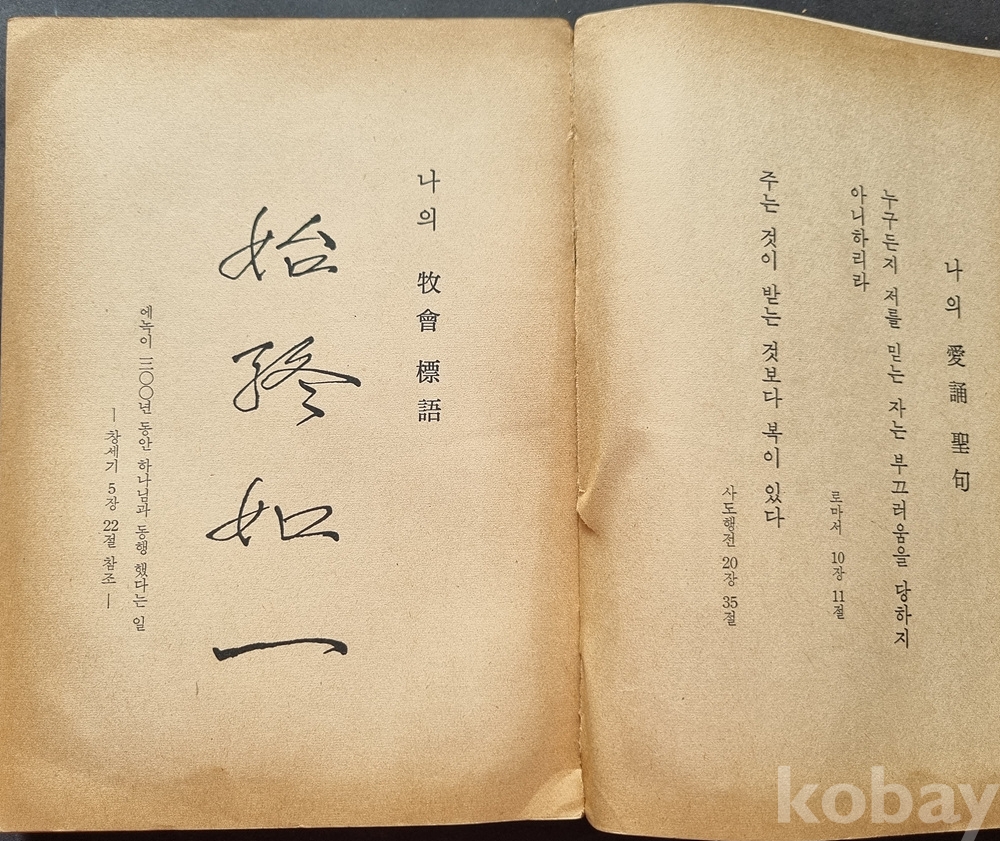 나의 愛誦 聖句
누구든지 저를 믿는 자는 부끄러움을 당하지
아니하리라
로마서 10장 11절
주는 것이 받는 것보다 복이 있다
사도행전 20장 35절
나의 牧會 標語
始終如一
에녹이 三〇〇년 동안 하나님과 동행 했다는 일
ㅡ창세기 5장 22절 참조ㅡ
kobay